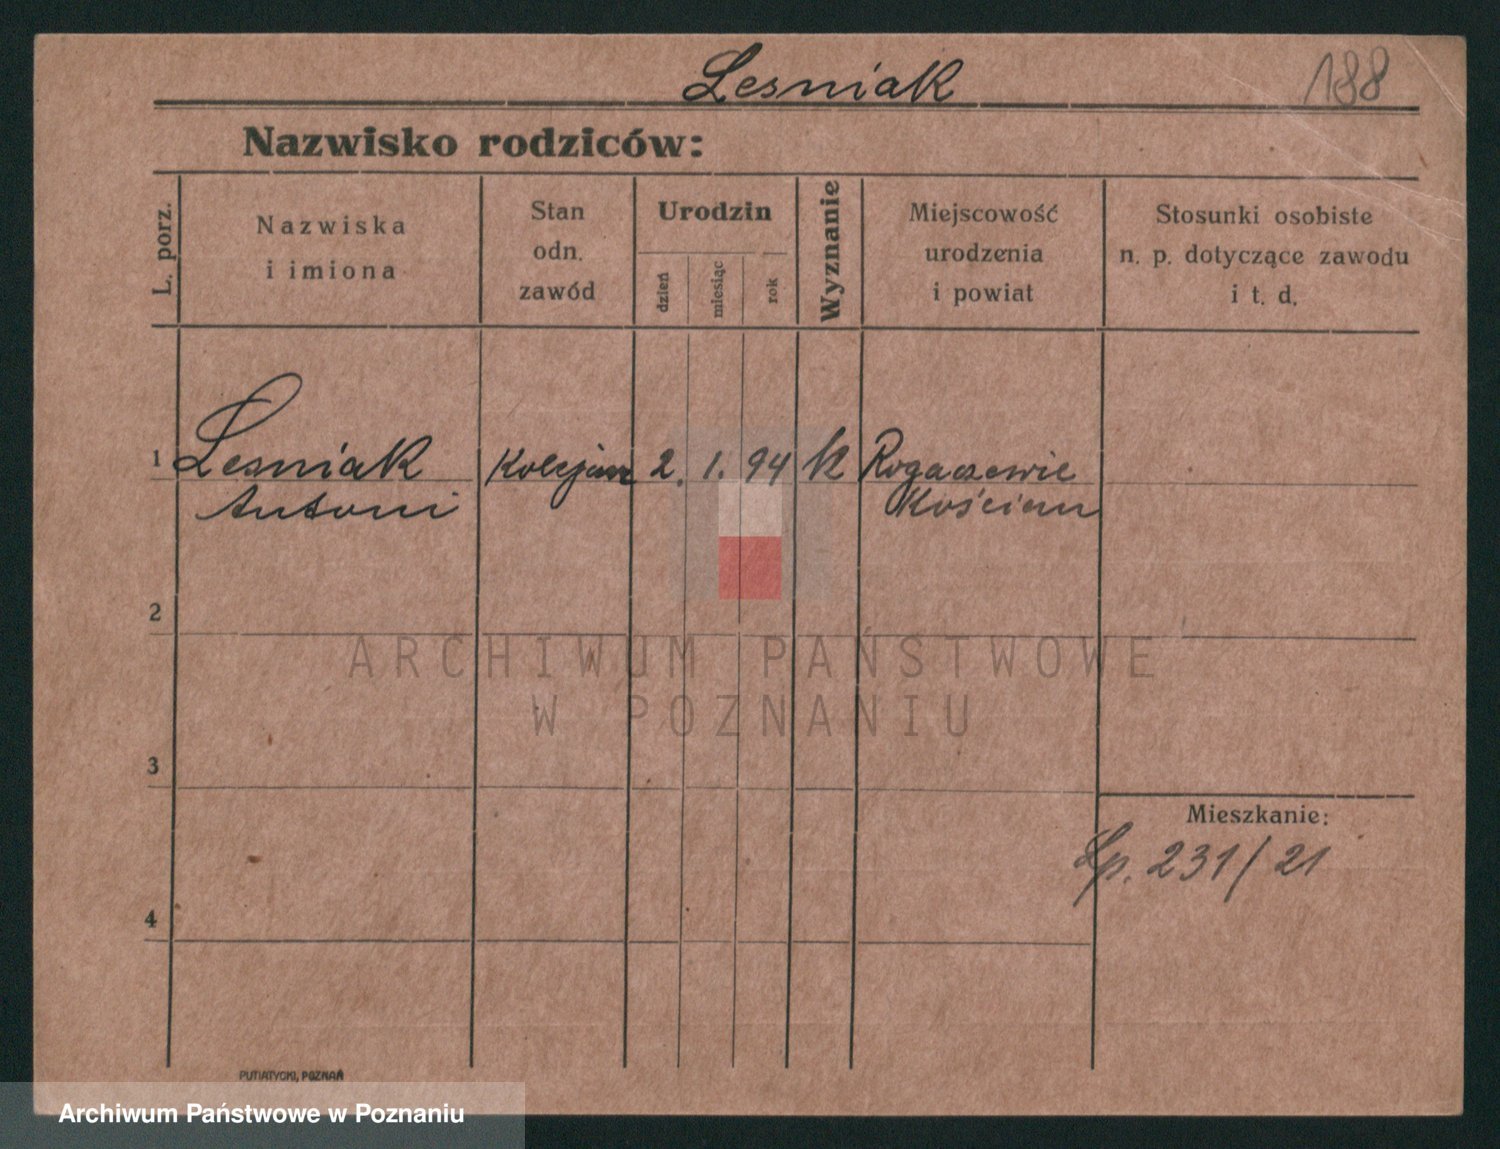 Lesniak
188
Nazwisko rodziców:
L. porz.
Nazwiska
i imiona
Stan
odn.
zawód
Urodzin
dzień
miesiąc
rok
Wyznanie
Miejscowość
urodzenia
i powiat
Stosunki osobiste
n. p. dotyczące zawodu
i t. d.
1 Lesniak 2. 1. 94 k Rogaczewie
Antoni Kościan
2
ARCHIWUM PAŃSTWOWE
W POZNANIU
3
Mieszkanie:
Lp. 231/21
4
PUTIATYCKI, POZNAŃ
Archiwum Państwowe w Poznaniu